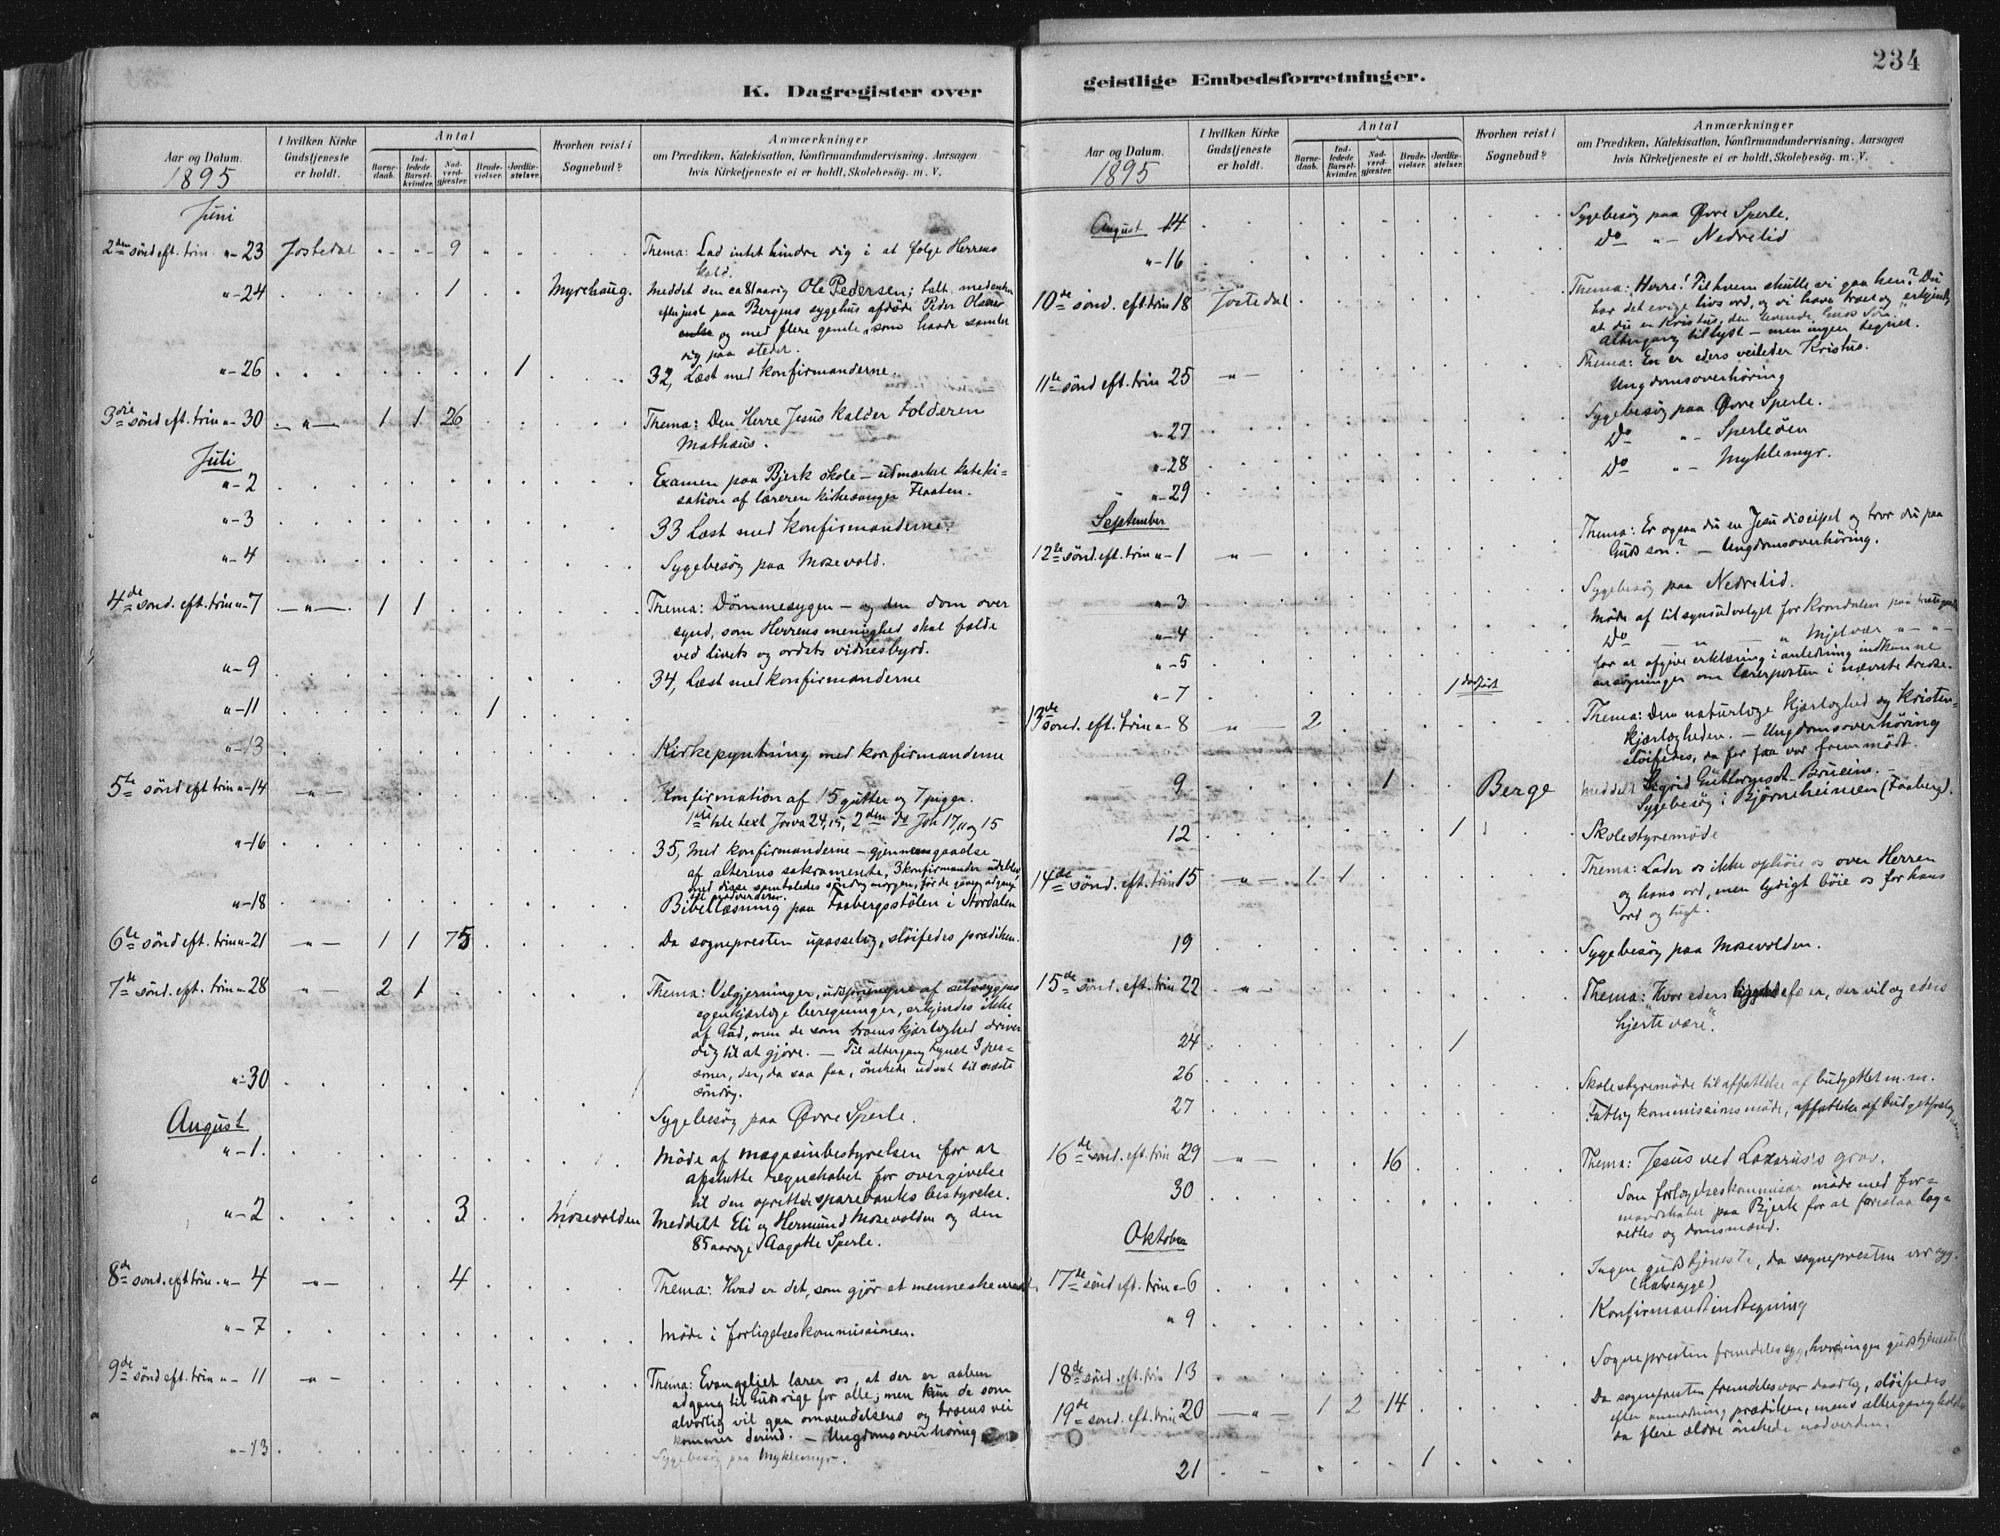 K. Dagregister over
Aar og Datum.
1895
I hvilken Kirke
Gudstjeneste
er holdt.
Antal
Barne-
daab.
Ind-
ledede
Barsel-
kvinder.
Nad-
verd-
gjæster.
Brude-
vielser.
Jordfæ-
stelser.
Hvorhen reist i
Sognebud?
Anmærkninger
om Prædiken, Katekisation, Konfirmandundervisning, Aarsagen
hvis Kirketjeneste ei er holdt, Skolebesøg. m. V.
Juni
2den sønd eft. trin. " 23 Jostedal 9 Thema: Lad intet hindre dig i at følge Herrens
kald.
" 24 1 Myrehaug. Meddelt den ca 81 aarig Ole Pedersen; talt med enken
efter just paa Bergens sygehus afdøde Peder Olsen
og med flere gamle, som havde samlet
sig paa stedet.
" 26 1 32, Læst med konfirmanderne.
3die sønd eft. trin " 30 " 1 1 26 Thema: Den Herre Jesus kalder tolderen
Mathæus.
Juli
" 2 Examen paa Bjerk skole – udmærket kateki-
sation af læreren kirkesanger Flaaten.
" 3 33 Læst med konfirmanderne.
" 4 Sygebesøg paa Mosevold.
4de sønd. eft. trin " 7 " 1 1 Thema: Dømmesygen – og den dom over
synd, som Herrens menighed skal fælde
ved livets og ordets vidnesbyrd.
" 9 34, Læst med konfirmanderne
" 11 1
" 13 Kirkepyntning med konfirmanderne
5te sønd eft trin " 14 " Konfirmation af 15 gutter og 7 piger.
1ste tale text Josva 24,15, 2den do Joh 17,11 og 15
" 16 35, Med konfirmanderne – gjennemgaaelse
af alterens sakramente, 3 konfirmander udeblev,
med disse samtaledes søndag morgen, før de gaves adgang
til nadverden.
" 18 Bibellæsning paa Faabergsstølen i Stordalen
6te sønd eft. trin " 21 " 1 1 75 Da sognepresten upasselig, sløifedes prædiken.
7de sønd. eft. trin " 28 " 2 1 Thema: Velgjerninger, udsprungne af selvsyges
egenkjærlige beregninger, erkjendes ikke
af Gud, men de som troens kjærlighed driver
dig til at gjøre. – Til altergang tegnet 3 per-
soner, der, da saa faa, ønskede udsat til næste
søndag.
" 30 Sygebesøg paa Øvre Sperle.
August
" 1. Møde af magasinbestyrelsen for at
afslutte regnskabet for overgivelse
til den oprettede sparebanks bestyrelse.
" 2 3 Mosevolden Meddelt Eli og Hermund Mosevolden og den
85 aarige Aagotte Sperle.
8de sønd. eft trin. " 4 " 4 Thema: Hvad er det, som gjør et menneske
" 7 Møde i forligelseskommissionen.
9de sønd eft. trin " 11 " Thema: Evangeliet lærer os, at der er aaben
adgang til Guds rige for alle; men kun de som
alvorlig vil gaa omvendelsens og troens vei
kommer derind. – Ungdomsoverhøring
" 13 Sygebesøg paa Myklemyr.
geistlige Embedsforretninger.
234
Aar og Datum.
1895
I hvilken Kirke
Gudstjeneste
er holdt.
Antal
Barne-
daab.
Ind-
ledede
Barsel-
kvinder.
Nad-
verd-
gjæster.
Brude-
vielser.
Jordfæ-
stelser.
Hvorhen reist i
Sognebud?
Anmærkninger
om Prædiken, Katekisation, Konfirmandundervisning, Aarsagen
hvis Kirketjeneste ei er holdt, Skolebesøg. m. V.
August 14 Sygebesøg paa Øvre Sperle.
" 16 Do " Nedrelid
10de sønd. eft. trin 18 Jostedal Thema: Herre! Til hvem skulle vi gaa hen? Du
har det evige livs ord, og vi have troet og erkjendt,
at du er Kristus, den levende Guds Søn.
Altergang tillyst – men ingen tegnet.
11te sønd eft. trin 25 " Thema: En er eders veileder Kristus.
Ungdomsoverhøring
" 27 Sygebesøg paa Øvre Sperle.
" 28 Do " Sperleøen
" 29 Do " Myklemyr.
September
12te sønd eft. trin " 1 " Thema: Er ogsaa du en Jesu discipel og tror du paa
Guds søn? – Ungdomsoverhøring.
" 3 Sygebesøg paa Nedrelid.
" 4 Møde af tilsynsudvalget for Krondalen paa
" 5 Do " " Mjelvær " "
for at afgive erklæring i anledning indkomne
ansøgninger om lærerposten i nævnte kredse.
" 7 1
13de sønd. eft. trin " 8 " 2 Thema: Den naturlige kjærlighed og kristen-
kjærligheden. – Ungdomsoverhøring
sløifedes, da for faa var fremmødt.
9 1 Berge Meddelt Sigrid Guttormsdt. Bruheim. –
Sygebesøg i Bjørnheimen (Faaberg).
12 1 Skolestyremøde
14de sønd. eft. trin 15 " 1 1 Thema: Lader os ikke ophøie os over Herren
og hans ord, men lydigt bøie os for hans
ord og tugt.
19 Sygebesøg paa Mosevolden.
15de sønd. eft. trin 22 " Thema: "Hvor eders liggendefæ er, der vil og eders
hjerte være".
24 1
26 Skolestyremøde til affattelse af budgettet m. m.
27 Fattigkommissionsmøde, affattelse af budgetforslag
16de sønd. eft. trin 29 " 16 Thema: Jesus ved Lazarus's grav.
30 Som forligelseskommisær møde med for-
mandskabet paa Bjerk for at forestaa lag-
rettes og domsmænd.
Oktober
17de sønd eft. trin " 6 Ingen gudstjeneste, da sognepresten var syg.
(halssyge)
" 9 Konfirmandindtegning
18de sønd. eft. trin 13 Sognepresten fremdeles syg, hvor ingen gudstjeneste
19de sønd. eft. trin 20 " 1 2 14 Da sognepresten fremdeles var daarlig, sløifedes
efter anmodning prædiken, mens altergang holdtes
da flere ældre ønskede nadverden.
21 1